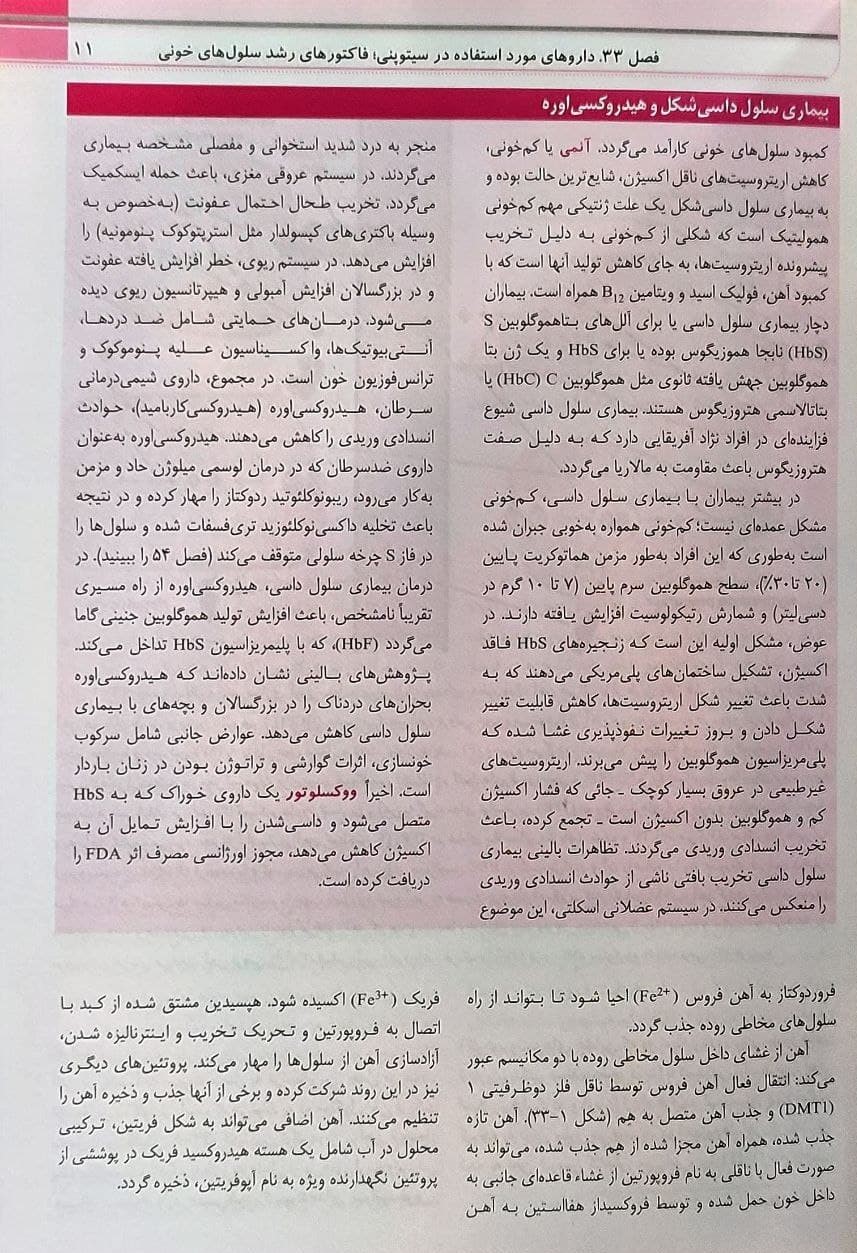 فصل ۳۳. داروهای مورد استفاده در سیتوپنی؛ فاکتورهای رشد سلول‌های خونی ۱۱
بیماری سلول داسی‌شکل و هیدروکسی‌اوره
کمبود سلول‌های خونی کارآمد می‌گردد. آنمی یا کم‌خونی،
کاهش اریتروسیت‌های ناقل اکسیژن، شایع‌ترین حالت بوده و
به بیماری سلول داسی‌شکل یک علت ژنتیکی مهم کم‌خونی
همولیتیک است که شکلی از کم‌خونی به دلیل تخریب
پیشرونده اریتروسیت‌ها، به جای کاهش تولید آنها است که با
کمبود آهن، فولیک اسید و ویتامین B12 همراه است. بیماران
دچار بیماری سلول داسی یا برای آلل‌های بتاهموگلوبین S
(HbS) نابجا هموزیگوس بوده یا برای HbS و یک ژن بتا
هموگلوبین جهش یافته ثانوی مثل هموگلوبین C (HbC) یا
بتاتالاسمی هتروزیگوس هستند. بیماری سلول داسی شیوع
فزاینده‌ای در افراد نژاد آفریقایی دارد که به دلیل صفت
هتروزیگوس باعث مقاومت به مالاریا می‌گردد.
در بیشتر بیماران با بیماری سلول داسی، کم‌خونی
مشکل عمده‌ای نیست؛ کم‌خونی همواره به‌خوبی جبران شده
است به‌طوری که این افراد به‌طور مزمن هماتوکریت پایین
(۲۰ تا ۳۰٪)، سطح هموگلوبین سرم پایین (۷ تا ۱۰ گرم در
دسی‌لیتر) و شمارش رتیکولوسیت افزایش یافته دارند. در
عوض، مشکل اولیه این است که زنجیره‌های HbS فاقد
اکسیژن، تشکیل ساختمان‌های پلی‌مریکی می‌دهند که به
شدت باعث تغییر شکل اریتروسیت‌ها، کاهش قابلیت تغییر
شکل دادن و بروز تغییرات نفوذپذیری غشا شده که
پلی‌مریزاسیون هموگلوبین را پیش می‌برند. اریتروسیت‌های
غیرطبیعی در عروق بسیار کوچک ـ جائی که فشار اکسیژن
کم و هموگلوبین بدون اکسیژن است ـ تجمع کرده، باعث
تخریب انسدادی وریدی می‌گردند. تظاهرات بالینی بیماری
سلول داسی تخریب بافتی ناشی از حوادث انسدادی وریدی
را منعکس می‌کنند. در سیستم عضلانی اسکلتی، این موضوع
منجر به درد شدید استخوانی و مفصلی مشخصه بیماری
می‌گردند. در سیستم عروقی مغزی، باعث حمله ایسکمیک
می‌گردد. تخریب طحال احتمال عفونت (به‌خصوص به
وسیله باکتری‌های کپسولدار مثل استرپتوکوک پنومونیه) را
افزایش می‌دهد. در سیستم ریوی، خطر افزایش یافته عفونت
و در بزرگسالان افزایش آمبولی و هیپرتانسیون ریوی دیده
می‌شود. درمان‌های حمایتی شامل ضد دردها،
آنتی‌بیوتیک‌ها، واکسیناسیون علیه پنوموکوک و
ترانس‌فوزیون خون است. در مجموع، داروی شیمی‌درمانی
سرطان، هیدروکسی‌اوره (هیدروکسی‌کاربامید)، حوادث
انسدادی وریدی را کاهش می‌دهند. هیدروکسی‌اوره به‌عنوان
داروی ضدسرطان که در درمان لوسمی میلوژن حاد و مزمن
به‌کار می‌رود، ریبونوکلئوتید ردوکتاز را مهار کرده و در نتیجه
باعث تخلیه داکسی‌نوکلئوزید تری‌فسفات شده و سلول‌ها را
در فاز S چرخه سلولی متوقف می‌کند (فصل ۵۴ را ببینید). در
درمان بیماری سلول داسی، هیدروکسی‌اوره از راه مسیری
تقریباً نامشخص، باعث افزایش تولید هموگلوبین جنینی گاما
می‌گردد (HbF)، که با پلیمریزاسیون HbS تداخل می‌کند.
پژوهش‌های بالینی نشان داده‌اند که هیدروکسی‌اوره
بحران‌های دردناک را در بزرگسالان و بچه‌های با بیماری
سلول داسی کاهش می‌دهد. عوارض جانبی شامل سرکوب
خونسازی، اثرات گوارشی و تراتوژن بودن در زنان باردار
است. اخیراً ووکسلوتور یک داروی خوراک که به HbS
متصل می‌شود و داسی‌شدن را با افزایش تمایل آن به
اکسیژن کاهش می‌دهد، مجوز اورژانسی مصرف اثر FDA را
دریافت کرده است.
فروردوکتاز به آهن فروس (Fe2+) احیا شود تا بتواند از راه
سلول‌های مخاطی روده جذب گردد.
آهن از غشای داخل سلول مخاطی روده با دو مکانیسم عبور
می‌کند: انتقال فعال آهن فروس توسط ناقل فلز دوظرفیتی ۱
(DMT1) و جذب آهن متصل به هم (شکل ۱-۳۳). آهن تازه
جذب شده، همراه آهن مجزا شده از هم جذب شده، می‌تواند به
صورت فعال با ناقلی به نام فروپورتین از غشاء قاعده‌ای جانبی به
داخل خون حمل شده و توسط فروکسیداز هفااستین به آهن
فریک (Fe3+) اکسیده شود. هپسیدین مشتق شده از کبد با
اتصال به فروپورتین و تحریک تخریب و اینترنالیزه شدن،
آزادسازی آهن از سلول‌ها را مهار می‌کند. پروتئین‌های دیگری
نیز در این روند شرکت کرده و برخی از آنها جذب و ذخیره آهن را
تنظیم می‌کنند. آهن اضافی می‌تواند به شکل فریتین، ترکیبی
محلول در آب شامل یک هسته هیدروکسید فریک در پوششی از
پروتئین نگهدارنده ویژه به نام آپوفریتین، ذخیره گردد.